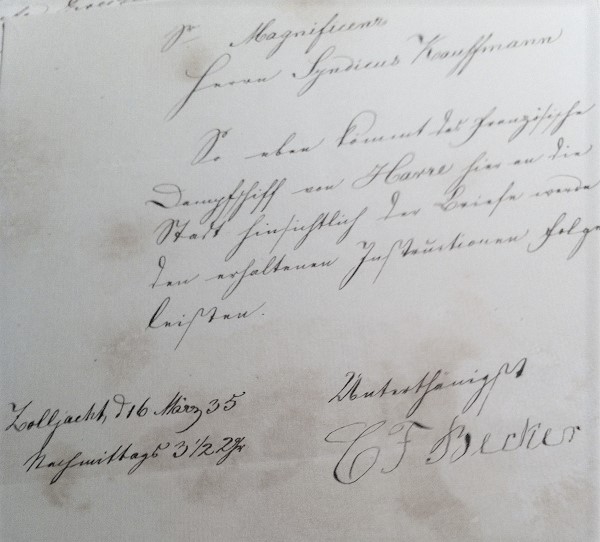 Sr Magnificenz
Herrn Syndicus Kauffmann
So eben kommt das französische
Dampfschiff von Havre hier an die
Stadt hinsichtlich der Briefe werde
den erhaltenen Instructionen Folge
leisten.
Unterthänigst
C F Becker
Zolljacht, d 16 März 35
Nachmittags 3 1/2 Uhr